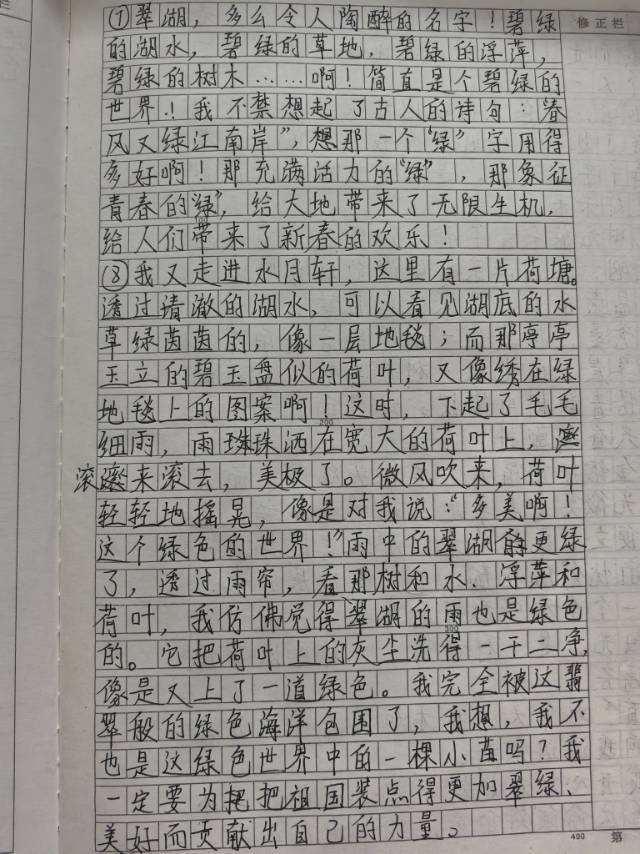 修正栏
①翠湖，多么令人陶醉的名字！碧绿
的湖水，碧绿的草地，碧绿的浮萍，
碧绿的树木……啊！简直是个碧绿的
世界！我不禁想起了古人的诗句：“春
风又绿江南岸”，想那一个“绿”字用得
多好啊！那充满活力的“绿”，那象征
青春的“绿”，给大地带来了无限生机，
给人们带来了新春的欢乐！
⑧我又走进水月轩，这里有一片荷塘。
透过清澈的湖水，可以看见湖底的水
草绿茵茵的，像一层地毯；而那亭亭
玉立的碧玉盘似的荷叶，又像绣在绿
地毯上的图案啊！这时，下起了毛毛
200
细雨，雨珠珠洒在宽大的荷叶上，
滚来滚去，美极了。微风吹来，荷叶
轻轻地摇晃，像是对我说：“多美啊！
这个绿色的世界！”雨中的翠湖更绿
了，透过雨帘，看那树和水、浮萍和
荷叶，我仿佛觉得翠湖的雨也是绿色
300
的。它把荷叶上的灰尘洗得一干二净，
像是又上了一道绿色。我完全被这翡
翠般的绿色海洋包围了，我想，我不
也是这绿色世界中的一棵小苗吗？我
一定要为把祖国装点得更加翠绿、
美好而贡献出自己的力量。
400 第